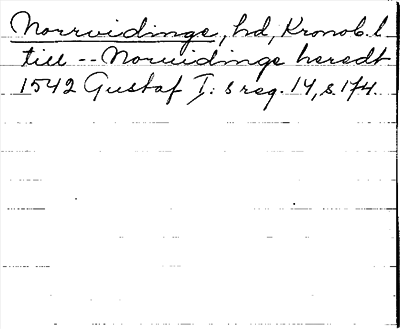 Norrvidinge, hd, Kronob. l
till -- Norvidinge heredt
1542 Gustaf I: s reg. 14, s. 174.